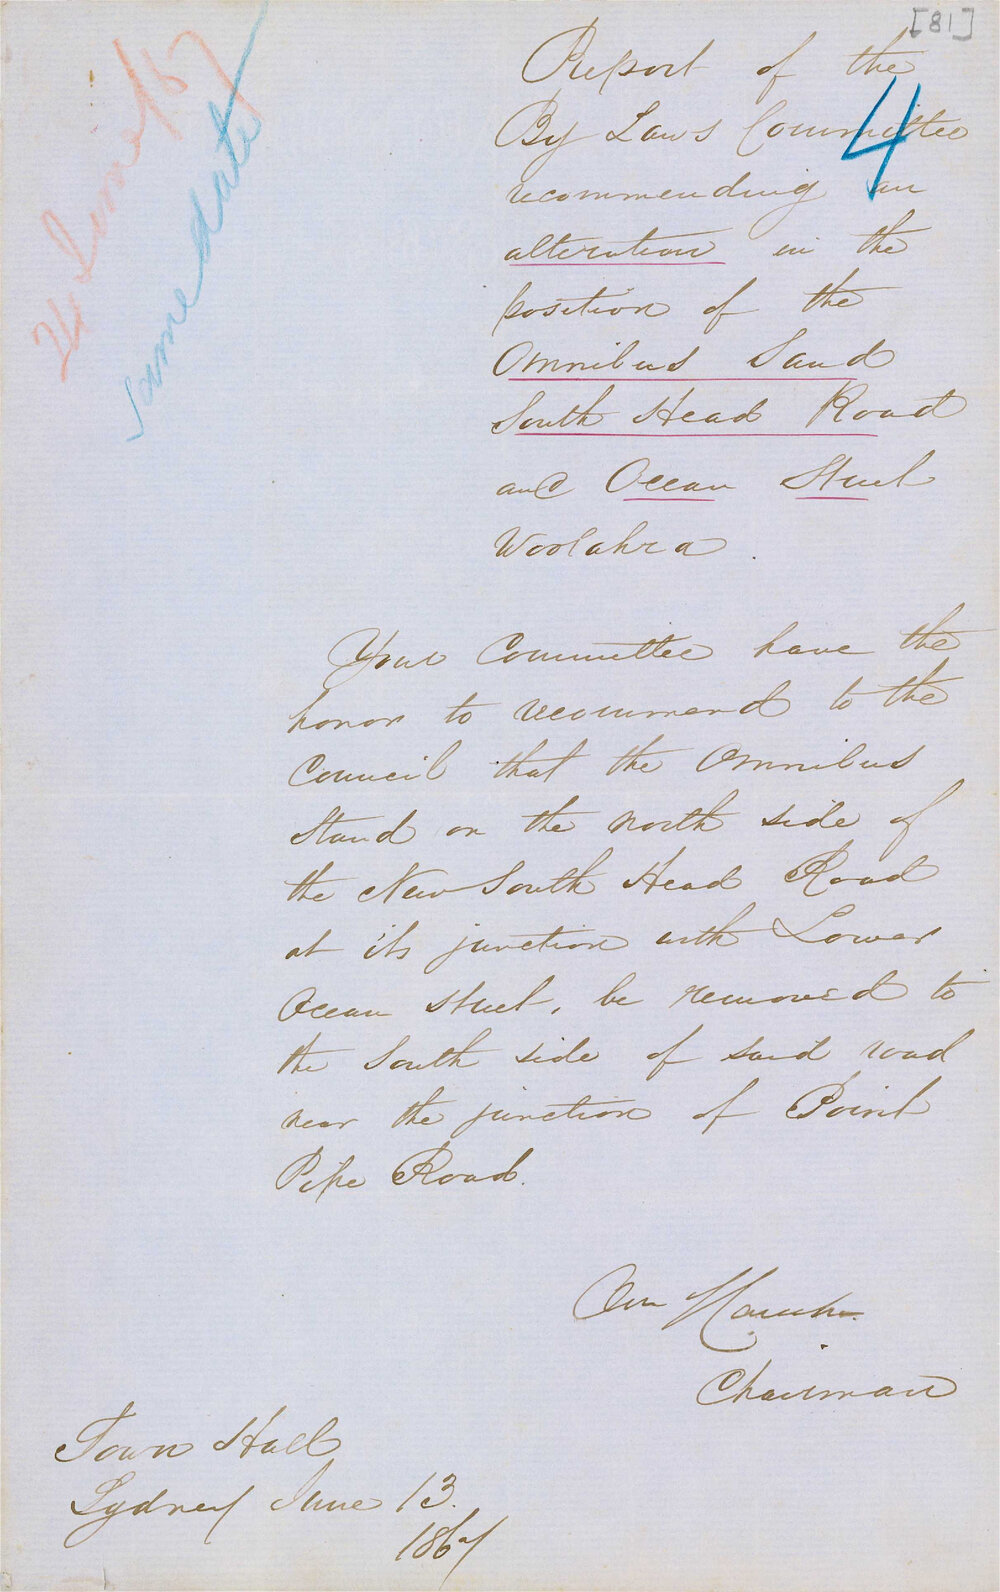 [81]
24 June/67
same date
4
Report of the
By Laws Committee
recommending an
alteration in the
position of the
Omnibus Sand
South Head Road
and Ocean Street
Woolahra.
Your Committee have the
honor to recommend to the
Council that the Omnibus
Stand on the north side of
the New South Head Road
at its junction with Lower
Ocean Street, be removed to
the South side of said road
near the junction of Point
Pipe Road.
Chairman
Town Hall
Sydney June 13.
1867